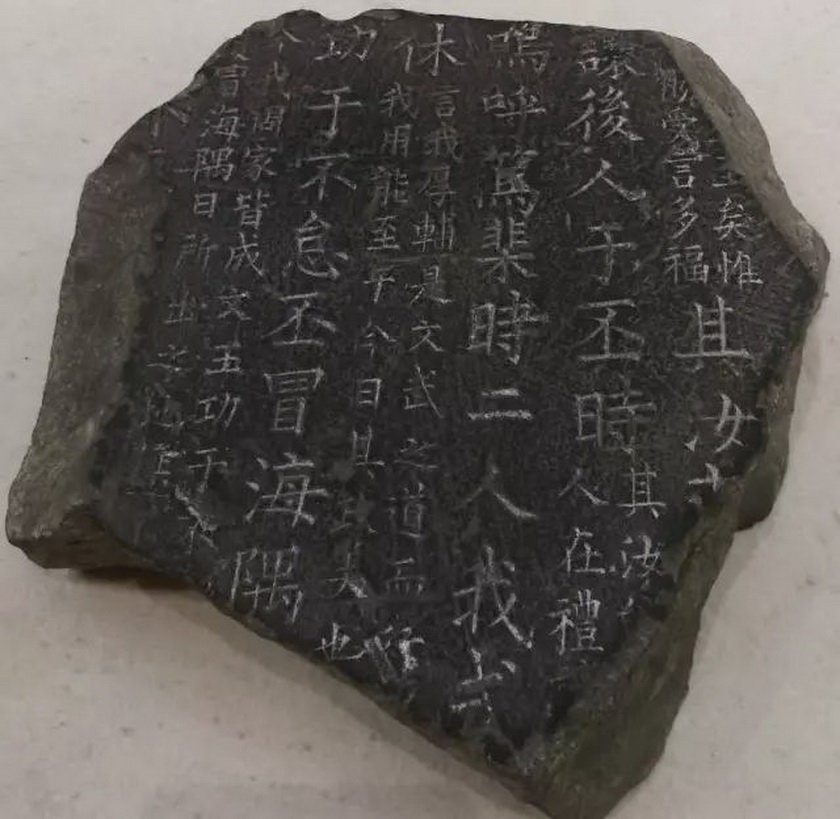 主矣惟
勝受言多福
且汝
讓後人于丕時
其汝
人在禮
嗚呼篤棐時二人我式
休
言我厚輔是文武之道而行
我用能至于今日其政美也
功于不怠丕冒海隅
今我周家皆成文王功于不
冒海隅日所出之地